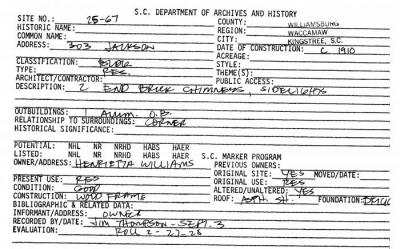 S.C. DEPARTMENT OF ARCHIVES AND HISTORY
SITE NO.: 25-67 COUNTY: WILLIAMSBURG
HISTORIC NAME: REGION: WACCAMAW
COMMON NAME: CITY: KINGSTREE, S.C.
ADDRESS: 303 JACKSON DATE OF CONSTRUCTION: C 1910
ACREAGE:
CLASSIFICATION: BLDG STYLE:
TYPE: RES. THEME(S):
ARCHITECT/CONTRACTOR: PUBLIC ACCESS:
DESCRIPTION: 2 END BRICK CHIMNEYS, SIDELIGHTS
OUTBUILDINGS: 1 O.B.
RELATIONSHIP TO SURROUNDINGS: CORNER
HISTORICAL SIGNIFICANCE:
POTENTIAL: NHL NR NRHD HABS HAER
LISTED: NHL NR NRHD HABS HAER S.C. MARKER PROGRAM
OWNER/ADDRESS: HENRIETTA WILLIAMS PREVIOUS OWNERS:
ORIGINAL SITE: YES MOVED/DATE:
PRESENT USE: RES ORIGINAL USE: RES
CONDITION: GOOD ALTERED/UNALTERED: YES
CONSTRUCTION: WOOD FRAME ROOF: ASPH. SH. FOUNDATION: BRICK
BIBLIOGRAPHIC & RELATED DATA:
INFORMANT/ADDRESS: OWNER
RECORDED BY/DATE: JIM THOMPSON - SEPT. 3
EVALUATION: ROLL 2 - 27-28